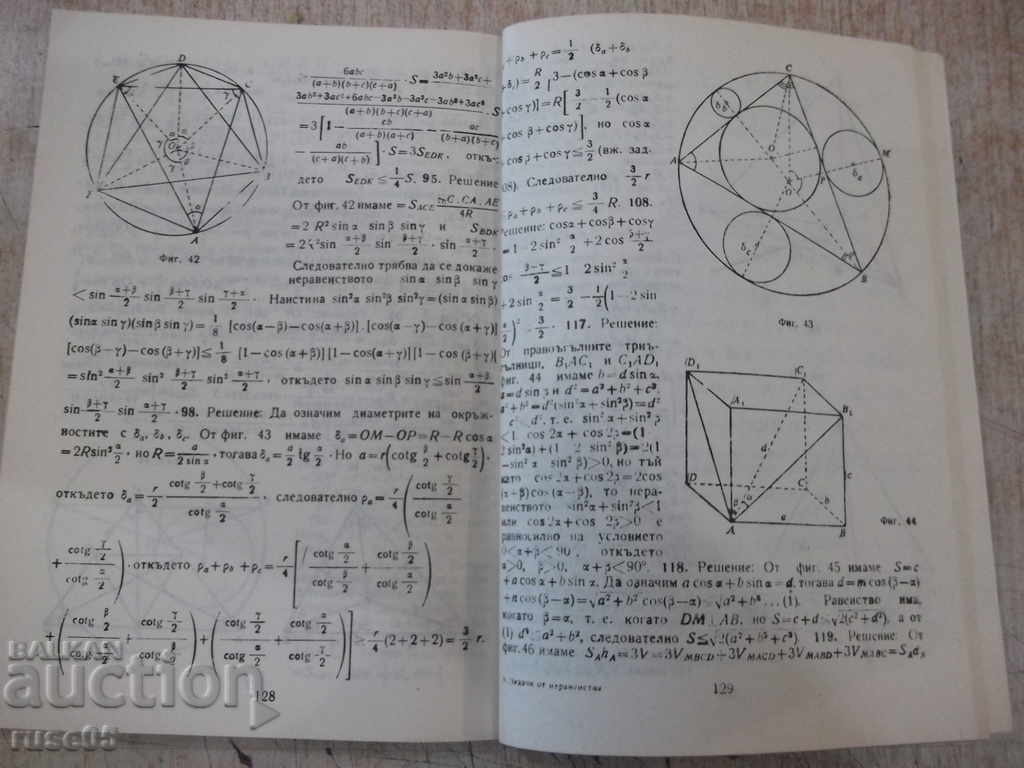 D
E
C
A
Фиг. 42
6abc
(a+b)(b+c)(c+a) · S = 3a²b+3a²c+
(a+b)(b+c)(c+a)
=3[1− cb/(a+b)(a+c) − ac/(b+a)(b+c)
− ab/(c+a)(c+b)] · S=3S_EDK, откъ-
дето S_EDK ≤ 1/4 S. 95. Решение
От фиг. 42 имаме
=2 R² sin α sin β sin γ и S_BDK
Следователно трябва да се докаже
неравенството sin α sin β sin γ
< sin (α+β)/2 sin (β+γ)/2 sin (γ+α)/2. Наистина sin²α sin²β sin²γ=(sin α sin β)
(sin α sin γ)(sin β sin γ)= 1/8 [cos(α−β)−cos(α+β)].[cos(α−γ)−cos(α+γ)]
[cos(β−γ)−cos(β+γ)] ≤ 1/8 [1−cos(α+β)][1−cos(α+γ)][1−cos(β+γ)]
=sin² (α+β)/2 sin² (β+γ)/2 sin² (α+γ)/2, откъдето sin α sin β sin γ ≤ sin (α+β)/2
sin (β+γ)/2 sin (α+γ)/2 · 98. Решение: Да означим диаметрите на окръж-
ностите с δa, δb, δc. От фиг. 43 имаме δa=OM−OP=R−R cos α
=2R sin² α/2, но R= a/(2 sin α), тогава δa= a/2 tg α/2 · Но a=r(cotg β/2 + cotg γ/2),
откъдето δa= r/2 · (cotg β/2 + cotg γ/2)/(cotg α/2), следователно ρa= r/4 (cotg β/2 / cotg α/2
+ cotg γ/2 / cotg α/2) · откъдето ρa+ρb+ρc= r/4 [(cotg α/2 / cotg β/2 + cotg β/2 / cotg α/2)
+(cotg β/2 / cotg γ/2 + cotg γ/2 / cotg β/2)+(cotg γ/2 / cotg α/2 + cotg α/2 / cotg γ/2)] ≥ r/4 (2+2+2)= 3/2 r.
128
BALKAN
auction
ruse05
+ρb+ρc= 1/2 (δa+δb
)= R/2 [3−(cos α+cos β
cos γ)]=R[3/2 − 1/2 (cos α
+cos β+cos γ)], но cos α
+cos β+cos γ ≤ 3/2 (вж. зад.
08). Следователно 3/2 r
ρa+ρb+ρc ≤ 3/4 R. 108.
Решение: cos α+cos β+cos γ
=1−2 sin² α/2 +2 cos (β+γ)/2
os (β−γ)/2 ≤ 1 2 sin² α/2
+2 sin α/2 = 3/2 − 1/2 (1−2 sin
α/2)² · 3/2. 117. Решение:
От правоъгълните триъ-
гълници, B₁AC₁ и C₁AD₁
фиг. 44 имаме b=d sin α,
a=d sin β и d²=a²+b²+c²,
a²+b²=d²(sin²α+sin²β)=
d², т. е. sin²α+sin²β
<1 cos 2α+cos 2β=(1
2 sin²α)+(1 2 sin²β)=2(1
−sin²α sin²β)>0, но тъй
като cos 2α+cos 2β=2cos
(α+β)cos(α−β), то нера-
венството sin²α+sin²β<1
или cos 2α+cos 2β>0 е
равносилно на условието
0<α+β<90°, откъдето
α>0, β>0, α+β<90°. 118. Решение: От фиг. 45 имаме S=c
+a cos α+b sin α. Да означим a cos α+b sin α=d, тогава d=m cos(β−α)
+n cos(β−α)=√a²+b² cos(β−α) √a²+b²...(1). Равенство има,
когато β=α, т. е. когато DM⊥AB. но S=c+d √2(c²+d²), а от
(1) d² a²+b², следователно S≤√2(a²+b²+c²) 119. Решение: От
фиг.46 имаме S_A h_A=3V=3V_MBCD+3V_MACD+3V_MABD+3V_MABC=S_A d_A
Задачи от неравенства
129
C
A
M
O
P
B
δb
δa
δc
Фиг. 43
D₁
C₁
A₁
B₁
D
C
A
B
d
c
b
a
α
β
Фиг. 44